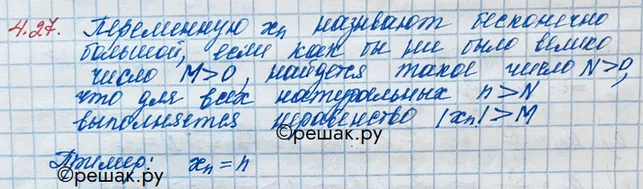 4.27. Переменную xₙ называют бесконечно
большой, если как бы ни было велико
число M>0, найдется такое число N>0,
что для всех натуральных n>N
выполняется неравенство |xₙ|>M
©решак.ру
Пример: xₙ = n
©решак.ру